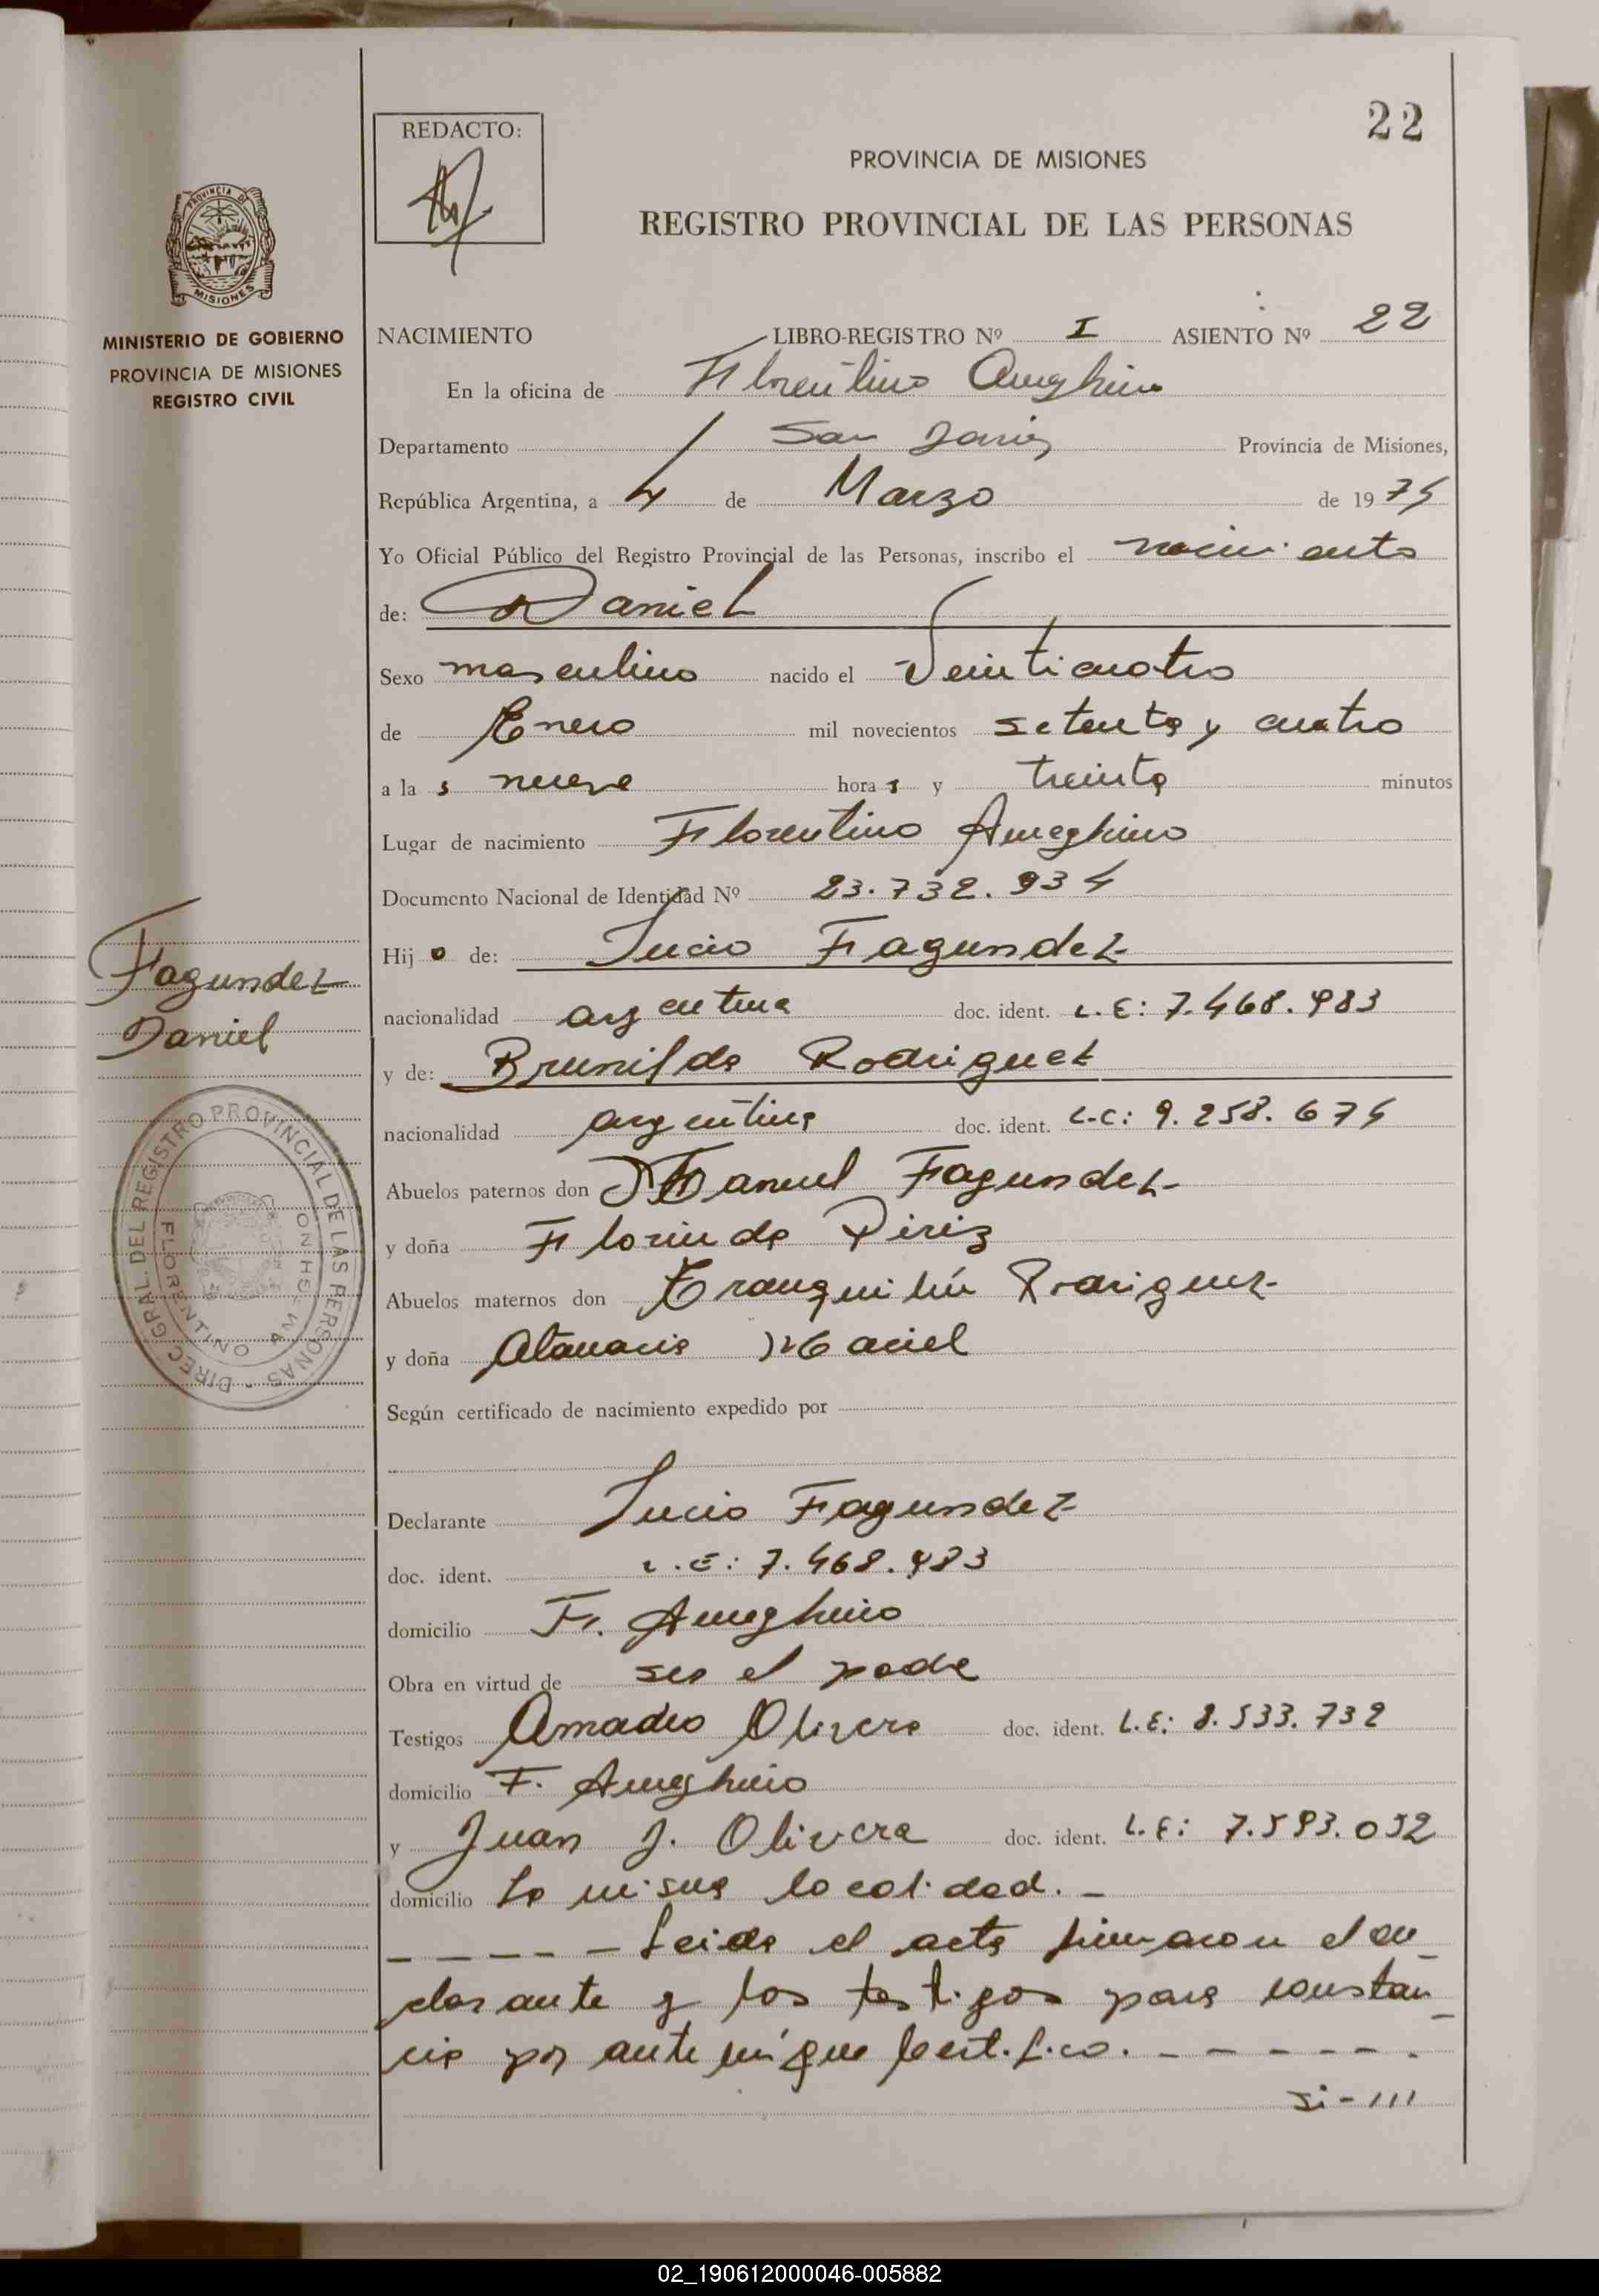 22
REDACTO:
PROVINCIA DE MISIONES
REGISTRO PROVINCIAL DE LAS PERSONAS
PROVINCIA DE
MISIONES
MINISTERIO DE GOBIERNO
PROVINCIA DE MISIONES
REGISTRO CIVIL
NACIMIENTO LIBRO-REGISTRO Nº I ASIENTO Nº 22
En la oficina de Florentino Ameghino
Departamento San Javier Provincia de Misiones,
República Argentina, a 4 de Marzo de 1974
Yo Oficial Público del Registro Provincial de las Personas, inscribo el nacimiento
de: Daniel
Sexo masculino nacido el Veinticuatro
de Enero mil novecientos setenta y cuatro
a las nueve horas y treinta minutos
Lugar de nacimiento Florentino Ameghino
Documento Nacional de Identidad Nº 23.732.934
Hijo de: Lucio Fagundez
nacionalidad argentina doc. ident. L.E: 7.468.983
y de: Brunilda Rodriguez
nacionalidad argentina doc. ident. L.C: 9.258.674
Abuelos paternos don Manuel Fagundez
y doña Florinda Piriz
Abuelos maternos don Tranquilin Rodriguez
y doña Atanacia Maciel
Según certificado de nacimiento expedido por
Declarante Lucio Fagundez
doc. ident. L.E: 7.468.983
domicilio F. Ameghino
Obra en virtud de ser el padre
Testigos Amadeo Olivera doc. ident. L.E: 8.533.732
domicilio F. Ameghino
y Juan J. Olivera doc. ident. L.E: 7.593.052
domicilio La misma localidad.-
----- Leida el acta firmaron el de-
clarante y los testigos para constan-
cia por ante mí que certifico. ------
si-///
Fagundez
Daniel
DIREC. GRAL. DEL REGISTRO PROVINCIAL DE LAS PERSONAS -
FLORENTINO AMEGHINO
02_190612000046-005882